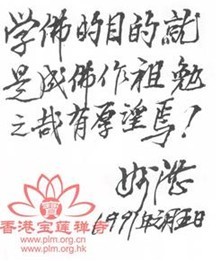 学佛的目的就
是成佛作祖勉
之哉有厚望焉！
1991年六月五日
香港宝莲禅寺
www.plm.org.cn
www.plm.org.hk